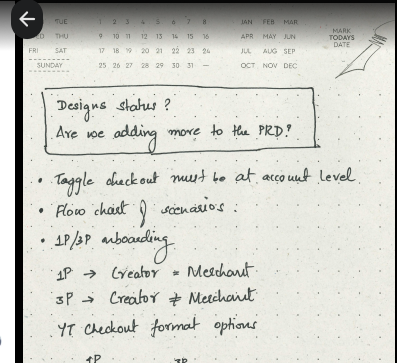 TUE 1 2 3 4 5 6 7 8 JAN FEB MAR
THU 9 10 11 12 13 14 15 16 APR MAY JUN
FRI SAT 17 18 19 20 21 22 23 24 JUL AUG SEP
SUNDAY 25 26 27 28 29 30 31 — OCT NOV DEC
MARK
TODAYS
DATE
Designs status?
Are we adding more to the PRD?
• Toggle checkout must be at account level
• Flow chart of scenarios.
• 1P/3P onboarding
1P → Creator = Merchant
3P → Creator ≠ Merchant
YT Checkout format options
1P 3P